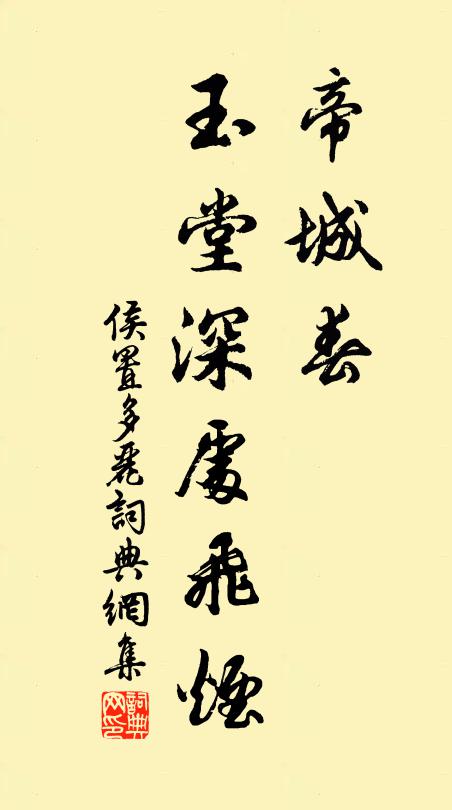 帝城春
玉堂深處飛煙
侯置多麗詞典網集
詞典網印